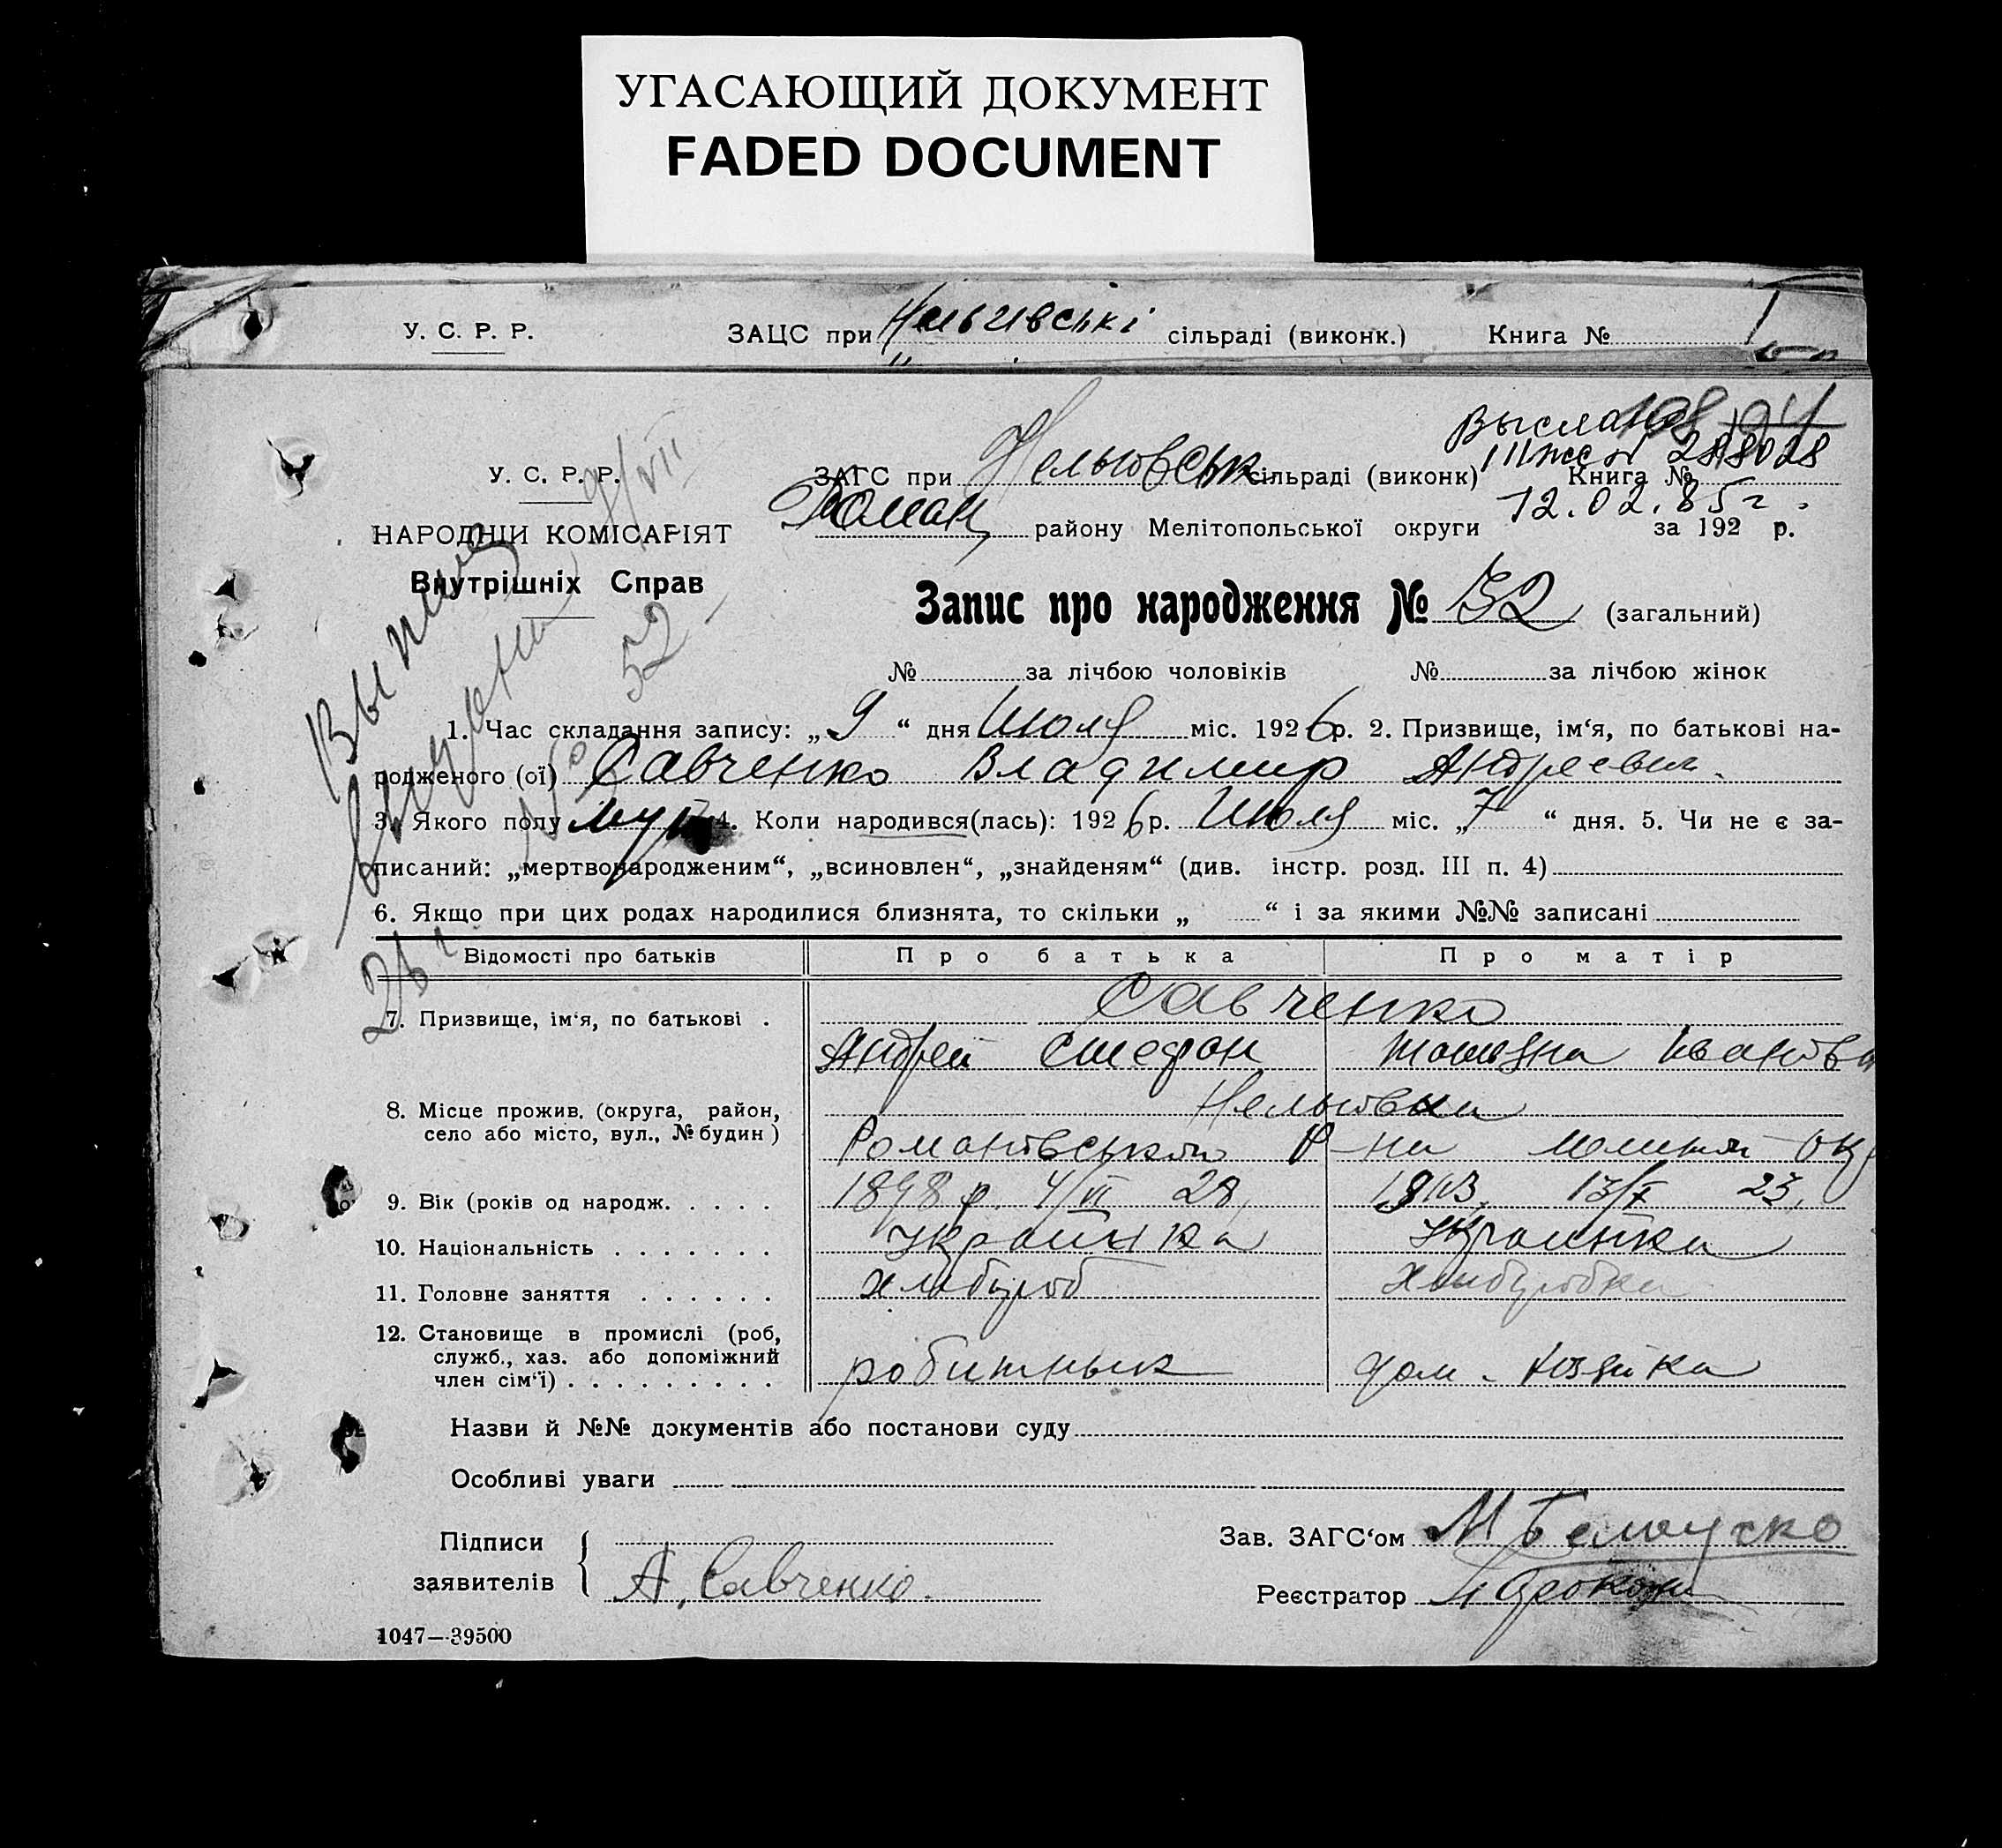 УГАСАЮЩИЙ ДОКУМЕНТ
FADED DOCUMENT
У. С. Р. Р. ЗАЦС при сільраді (виконк.) Книга №
Выслано
288028
У. С. Р. Р. ЗАГС при Нельговськ сільраді (виконк) Книга №
12.02.85г.
НАРОДНІЙ КОМІСАРІЯТ Роман району Мелітопольської округи за 192 р.
Внутрішніх Справ
Запис про народження № 52 (загальний)
52
№ за лічбою чоловіків № за лічбою жінок
1. Час складання запису: „9“ дня Июля міс. 1926 р. 2. Призвище, ім‘я, по батькові на-
родженого (ої) Савченко Владимир Андреевич.
3. Якого полу муж 4. Коли народився(лась): 1926 р. Июля міс. „7“ дня. 5. Чи не є за-
писаний: „мертвонародженим“, „всиновлен“, „знайденям“ (див. інстр. розд. III п. 4)
6. Якщо при цих родах народилися близнята, то скільки „ “ і за якими №№ записані
Відомості про батьків Про батька Про матір
7. Призвище, ім‘я, по батькові . Савченко
Андрей Стефан Татьяна Иванов
8. Місце прожив. (округа, район,
село або місто, вул., № будин)
Романовського р-на
9. Вік (років од народж. . . . . 1898 р. 4/VII 28, 1903, 13/X 23,
10. Національність . . . . . . . Украинка Украинка
11. Головне заняття . . . . . . хлебороб хлеборобка
12. Становище в промислі (роб,
служб., хаз. або допоміжний
член сім‘ї) . . . . . . . . . робитнык дом. хозяйка
Назви й №№ документів або постанови суду
Особливі уваги
Підписи
заявителів А. Савченко.
Зав. ЗАГС‘ом
Реєстратор
1047—39500